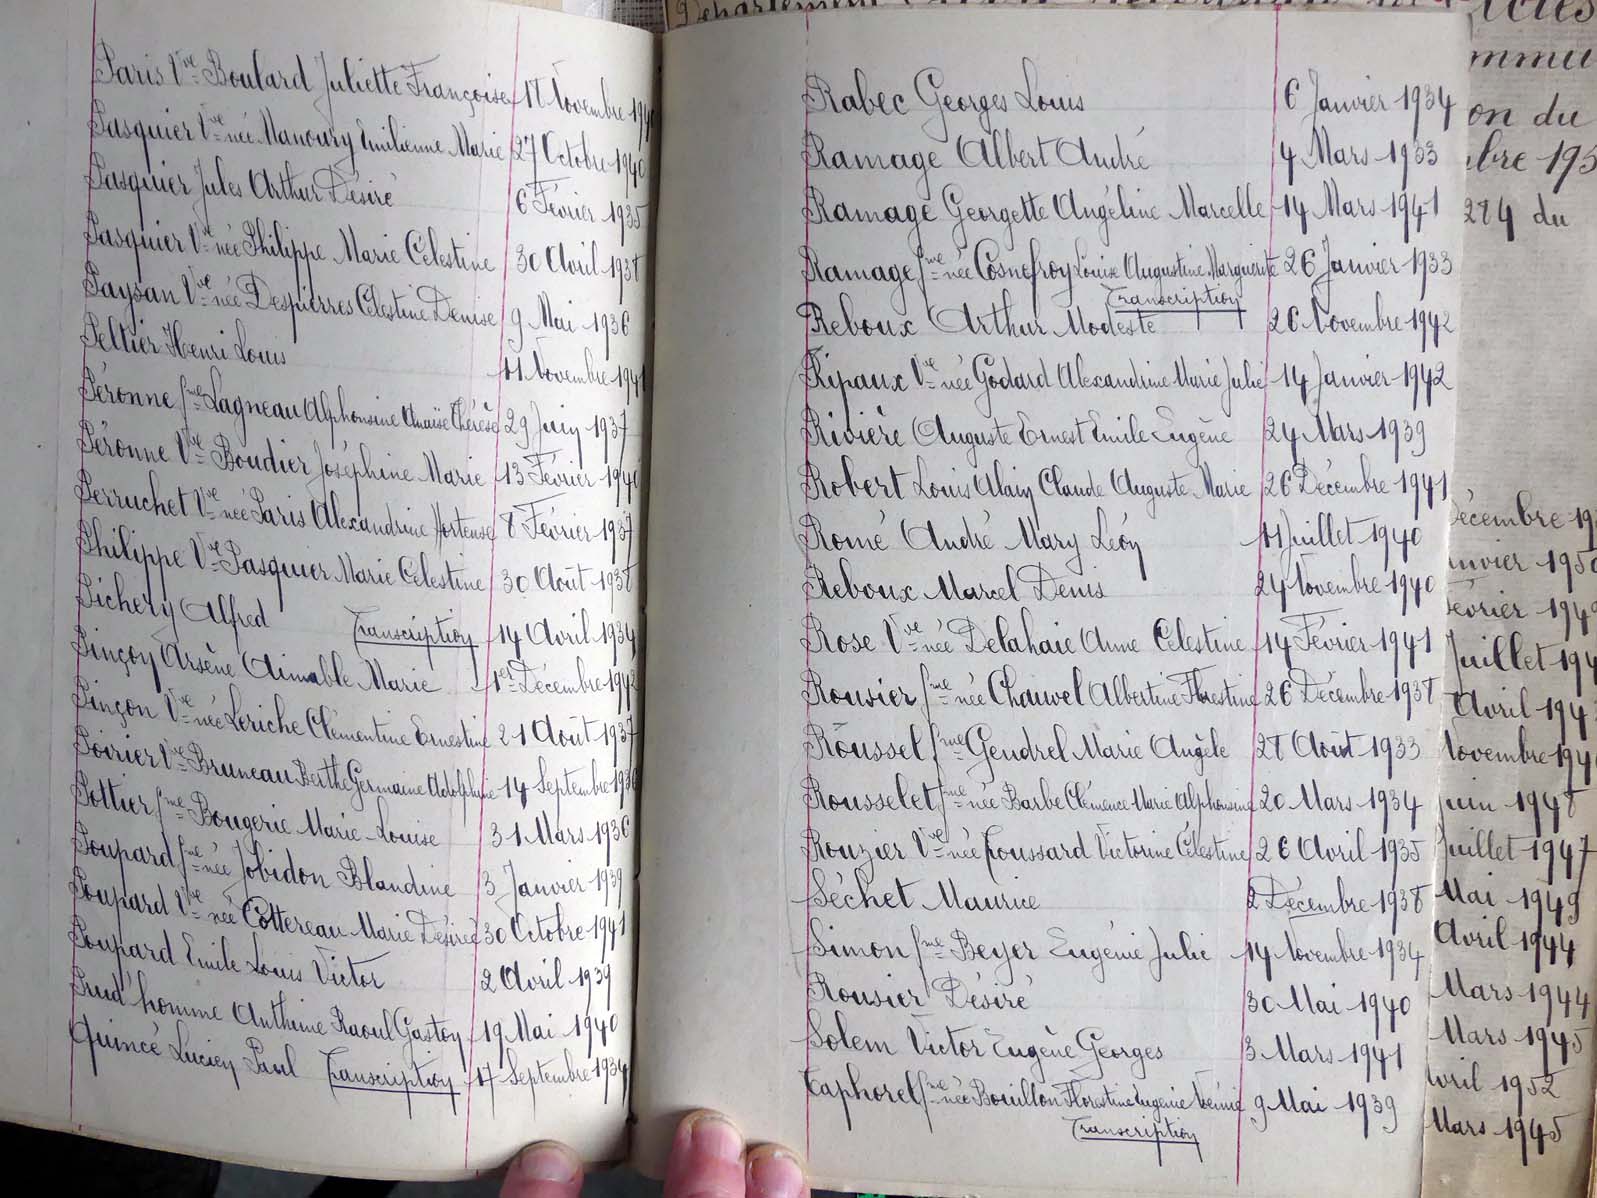 Paris Vve Boulard Juliette Françoise 18 Novembre 194
Pasquier Vve née Manoury Emilienne Marie 27 Octobre 1940
Pasquier Jules Arthur Désiré 6 Février 1935
Pasquier Vve née Philippe Marie Célestine 30 Avril 1938
Paysan Vve née Despierres Célestine Denise 9 Mai 1936
Peltier Henri Louis 11 Novembre 1941
Péronne fme Lagneau Alphonsine Anaïse Thérèse 29 Juin 1937
Péronne Vve Boudier Joséphine Marie 13 Février 1940
Perruchet Vve née Paris Alexandrine Hortense 8 Février 1937
Philippe Vve Pasquier Marie Célestine 30 Août 1938
Pichery Alfred Transcription 14 Avril 1934
Pinçon Arsène Aimable Marie 1er Décembre 1942
Pinçon Vve née Leriche Clémentine Ernestine 21 Août 1937
Poirier Vve Bruneau Berthe Germaine Adolphine 14 Septembre 1936
Pottier fme Bougerie Marie-Louise 31 Mars 1936
Poupard fme née Jobidon Blandine 3 Janvier 1939
Poupard Vve née Cottereau Marie Désirée 30 Octobre 1941
Poupard Emile Louis Victor 2 Avril 1939
Prud'homme Anthime Raoul Gaston 19 Mai 1940
Quincé Lucien Paul Transcription 17 Septembre 1934
Rabec Georges Louis 6 Janvier 1934
Ramage Albert André 4 Mars 1933
Ramage Georgette Angéline Marcelle 14 Mars 1941
Ramage fme née Cosnefroy Louise Augustine Marguerite 26 Janvier 1933
Transcription
Reboux Arthur Modeste 26 Novembre 1942
Ripaux Vve née Godard Alexandrine Marie Julie 14 Janvier 1942
Rivière Auguste Ernest Emile Eugène 24 Mars 1939
Robert Louis Alain Claude Auguste Marie 26 Décembre 1941
Romé André Mary Léon 11 Juillet 1940
Reboux Marcel Denis 24 Novembre 1940
Rose Vve née Delahaie Anne Célestine 14 Février 1941
Rousier fme née Chauvel Albertine Florestine 26 Décembre 1938
Roussel fme Gendrel Marie Angèle 28 Août 1933
Rousselet fme née Barbe Clémence Marie Alphonsine 20 Mars 1934
Rouzier Vve née Foussard Victorine Célestine 26 Avril 1935
Séchet Maurice 2 Décembre 1938
Simon fme Beyer Eugénie Julie 14 Novembre 1934
Rousier Désiré 30 Mai 1940
Solem Victor Eugène Georges 3 Mars 1941
Taphorel fme née Bouillon Florestine Eugénie 9 Mai 1939
Transcription
Département
mmu
on du
mbre 195
274 du
Décembre 19
anvier 1950
Février 194
Juillet 194
Avril 194
Novembre 194
Juin 1948
Juillet 1947
Mai 1949
Avril 1944
Mars 1944
Mars 1945
Avril 1952
Mars 1945